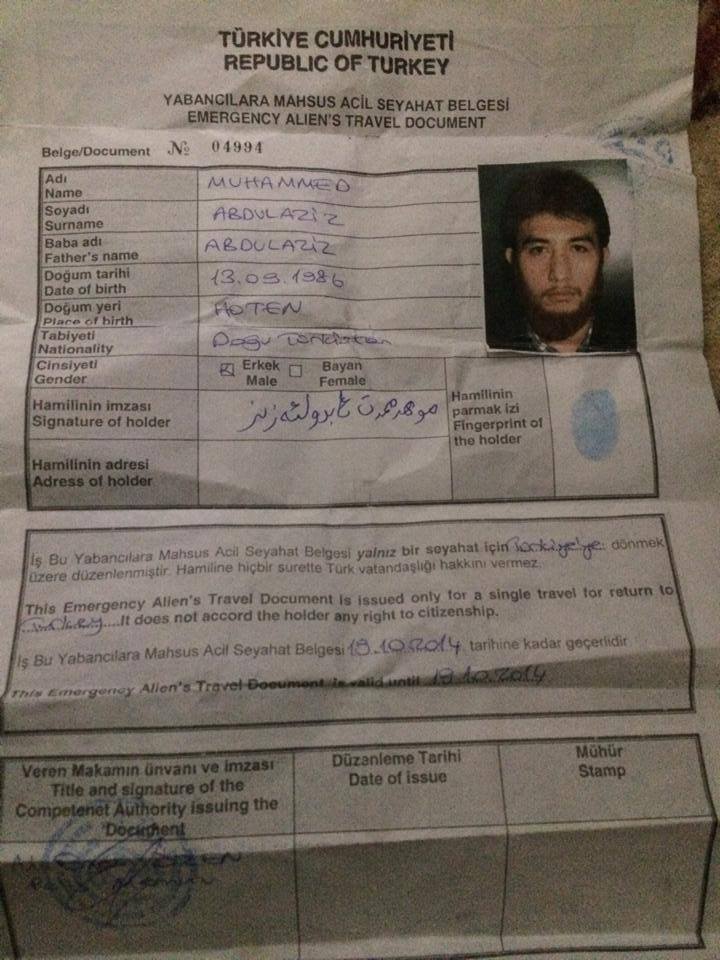 TÜRKİYE CUMHURİYETİ
REPUBLIC OF TURKEY
YABANCILARA MAHSUS ACİL SEYAHAT BELGESİ
EMERGENCY ALIEN'S TRAVEL DOCUMENT
Belge/Document № 04994
Adı
Name
MUHAMMED
Soyadı
Surname
ABDULAZİZ
Baba adı
Father's name
ABDULAZİZ
Doğum tarihi
Date of birth
13.09.1986
Doğum yeri
Place of birth
HOTEN
Tabiyeti
Nationality
Doğu Türkistan
Cinsiyeti
Gender
Erkek
Male
Bayan
Female
Hamilinin imzası
Signature of holder
Hamilinin parmak izi
Fingerprint of the holder
Hamilinin adresi
Adress of holder
İş Bu Yabancılara Mahsus Acil Seyahat Belgesi yalnız bir seyahat için Türkiye'ye dönmek
üzere düzenlenmiştir. Hamiline hiçbir surette Türk vatandaşlığı hakkını vermez.
This Emergency Alien's Travel Document is issued only for a single travel for return to
Turkey....It does not accord the holder any right to citizenship.
İş Bu Yabancılara Mahsus Acil Seyahat Belgesi 19.10.2014 tarihine kadar geçerlidir
This Emergency Alien's Travel Document is valid until 19.10.2014
Veren Makamın ünvanı ve imzası
Title and signature of the
Competenet Authority issuing the
Document
Düzanleme Tarihi
Date of issue
Mühür
Stamp